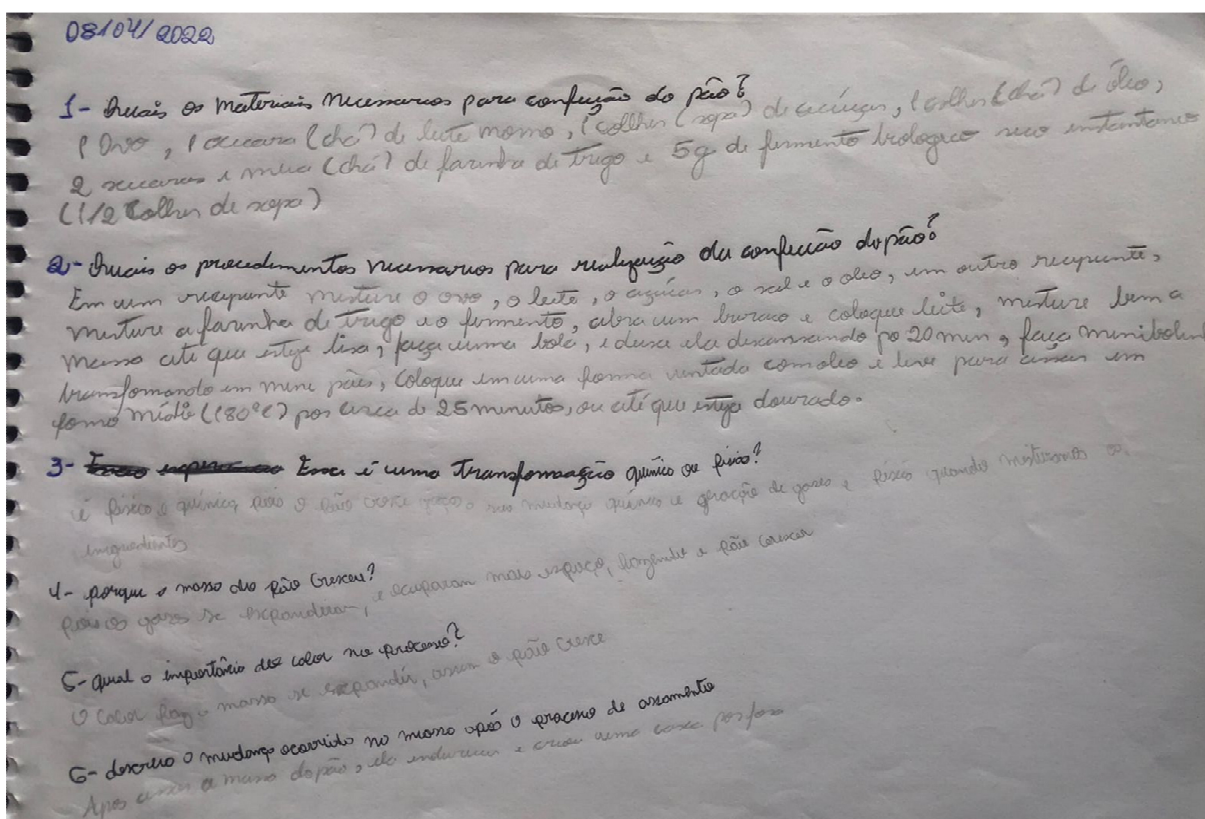 08/04/2022
1- Quais os materiais necessarios para confecção do pão?
1 Ovo, 1 xicara (chá) de leite morno, 1 colher (sopa) de açúcar, 1 colher (chá) de óleo,
2 xicaras e meia (chá) de farinha de trigo e 5g de fermento biologico seco instantaneo
(1/2 Colher de sopa)
2- Quais os procedimentos necessarios para realização da confecção do pão?
Em um recipiente misture o ovo, o leite, o açúcar, o sal e o oleo, em outro recipiente,
misture a farinha de trigo e o fermento, abra um buraco e coloque leite, misture bem a
massa até que esteja lisa, faça uma bola, e deixa ela descansando po 20 min, faça minibolin
transfomando em mini pães, Coloque em uma forma untada com oleo e leve para assar em
forno médio (180°C) por cerca de 25 minutos, ou até que esteja dourado.
3- Essa é uma transformação químico ou físico?
é físico e química, pois o pão cresce nas mudança químico e geração de gases e físico quando misturamos os
ingredientes
4- porque a massa do pão Cresceu?
pois os gases se expandiram, e ocuparam mais espaço, fazendo o pão crescer
5- qual o importância do calor no processo?
O Calor faz a massa se expandir, assim o pão cresce
6- descreva o mudança ocorrido no massa após o processo de assamento
Apos assar a massa do pão, ela endureceu e criou uma casca